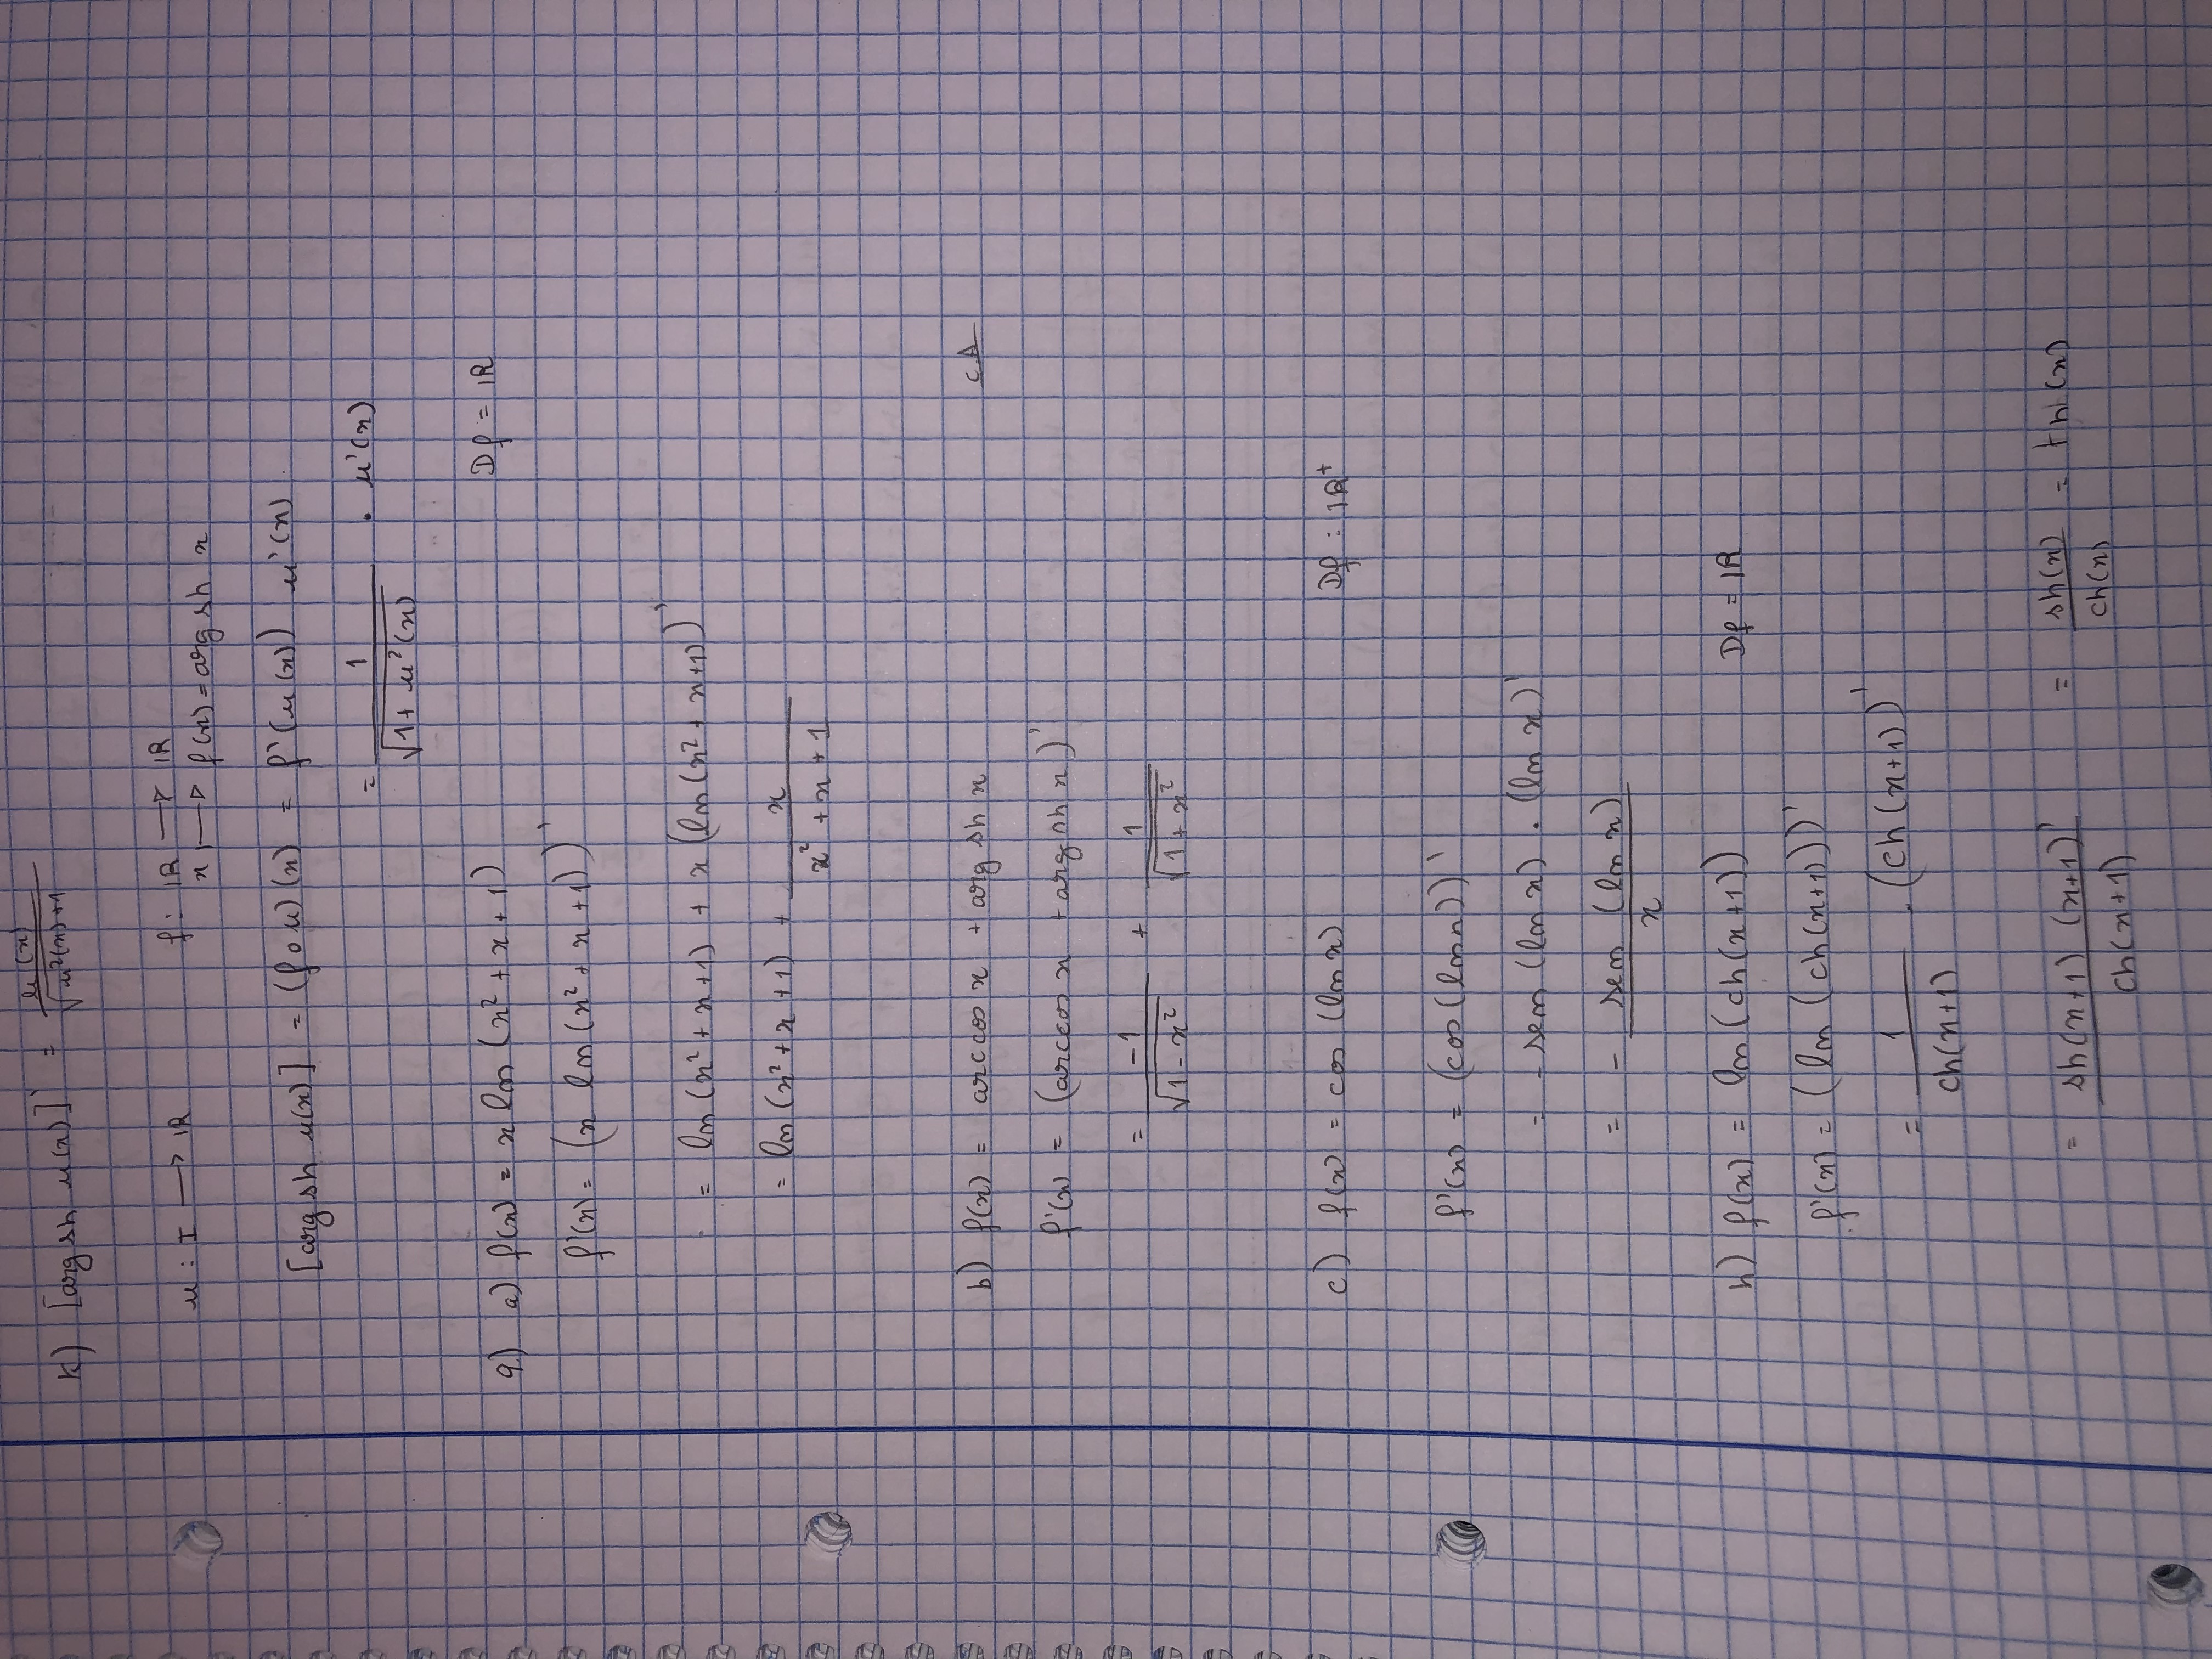 k) [arg sh u(x)]' = u'(x) / √(u²(x)+1)
u : I → IR f : IR → IR
x → f(x) = arg sh x
[arg sh u(x)] = (f o u)(x) = f'(u(x)) u'(x)
= 1 / √(1 + u²(x)) . u'(x)
9) a) f(x) = x ln (x² + x + 1) Df = IR
f'(x) = (x ln (x² + x + 1))'
= ln (x² + x + 1) + x (ln (x² + x + 1))'
= ln (x² + x + 1) + x / (x² + x + 1)
b) f(x) = arccos x + arg sh x CA
f'(x) = (arccos x + arg sh x)'
= -1 / √(1 - x²) + 1 / √(1 + x²)
c) f(x) = cos (ln x) Df : IR⁺
f'(x) = (cos (ln x))'
= - sen (ln x) . (ln x)'
= - sen (ln x) / x
h) f(x) = ln (ch(x+1)) Df = IR
f'(x) = (ln (ch(x+1)))'
= 1 / ch(x+1) . (ch (x+1))'
= sh(x+1) (x+1)' / ch(x+1) = sh(x) / ch(x) = th (x)